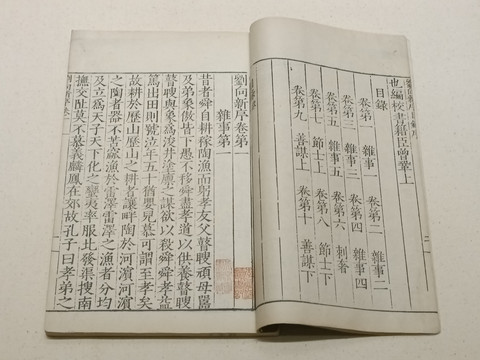 也編校書籍臣曾鞏上
目錄
卷第一 雜事一 卷第二 雜事二
卷第三 雜事三 卷第四 雜事四
卷第五 雜事五 卷第六 刺奢
卷第七 節士上 卷第八 節士下
卷第九 善謀上 卷第十 善謀下
劉向新序卷第一
雜事第一
昔者舜自耕稼陶漁而躬孝友父瞽瞍頑母嚚
及弟象傲皆下愚不移舜盡孝道以供養瞽瞍
瞽瞍與象爲浚井塗廩之謀欲以殺舜舜孝益
篤出田則號泣年五十猶嬰兒慕可謂至孝矣
故耕於歷山歷山之耕者讓畔陶於河濱河濱
之陶者器不苦窳漁於雷澤雷澤之漁者分均
及立爲天子天下化之蠻夷率服北發渠搜南
撫交阯莫不慕義麟鳳在郊故孔子曰孝弟之